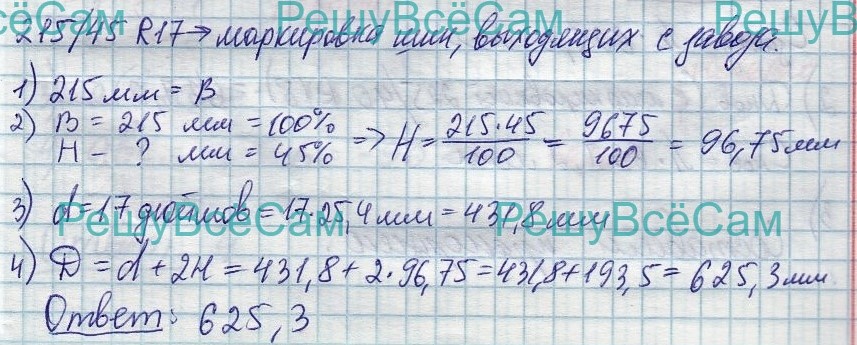 РешуВсёСам РешуВсёСам
215/45 R17 → маркировка шин, выходящих с завода.
1) 215 мм = В
2) В = 215 мм = 100%
Н - ? мм = 45% => Н = 215·45/100 = 9675/100 = 96,75 мм
3) d = 17 дюймов = 17·25,4 мм = 431,8 мм
РешуВсёСам РешуВсёСам
4) D = d + 2H = 431,8 + 2·96,75 = 431,8 + 193,5 = 625,3 мм
Ответ: 625,3